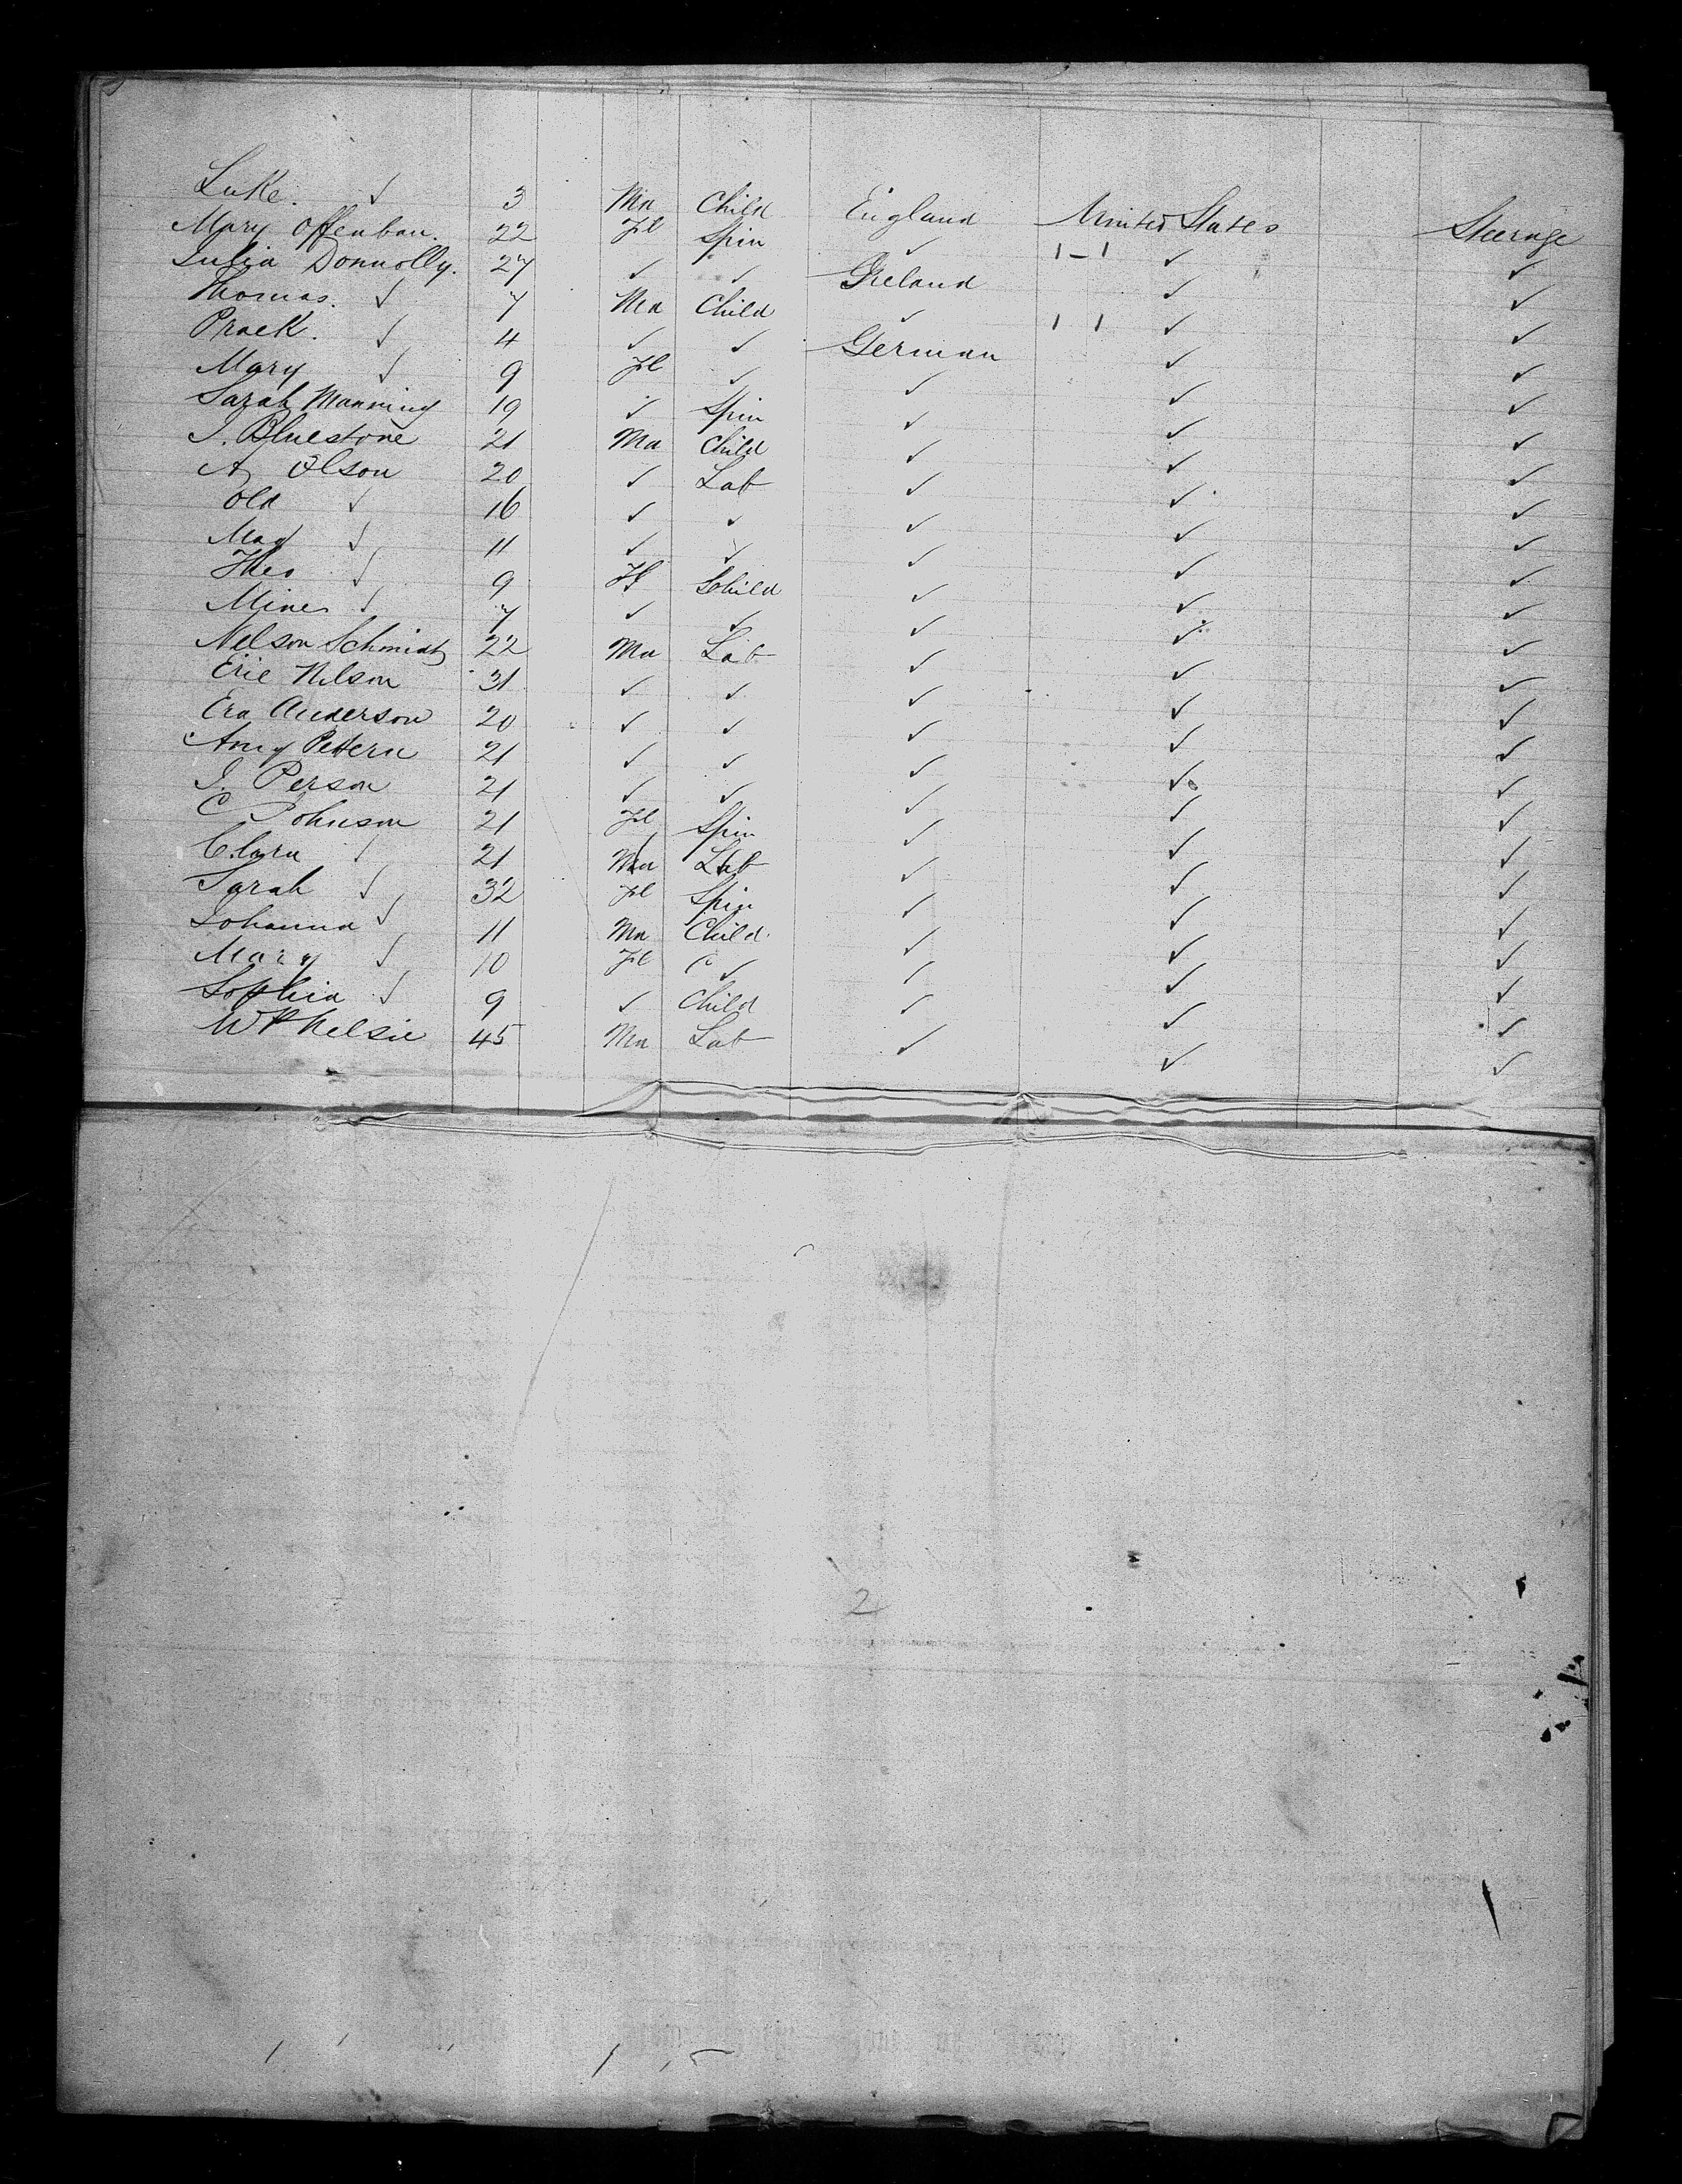 Luke. ✓ 3 Ma Child England United States Steerage
Mary Offenban. 22 Fl Spin ✓ 1-1 ✓ ✓
Julia Donnolly. 27 ✓ ✓ Ireland ✓ ✓
Thomas. ✓ 7 Ma Child ✓ 1 1 ✓ ✓
✓ 4 ✓ ✓ German ✓ ✓
Mary ✓ 9 Fl ✓ ✓ ✓ ✓
Sarah Manning 19 ✓ Spin ✓ ✓ ✓
J. Bluestone 21 Ma Child ✓ ✓ ✓
A Olson 20 ✓ Lab ✓ ✓ ✓
Old ✓ 16 ✓ ✓ ✓ ✓ ✓
Mad ✓ 11 ✓ ✓ ✓ ✓ ✓
Theo ✓ 9 Fl Child ✓ ✓ ✓
Mines ✓ 7 ✓ ✓ ✓ ✓ ✓
Nelson Schmidt 22 Ma Lab ✓ ✓ ✓
Eric Nilson 31 ✓ ✓ ✓ ✓ ✓
Era Anderson 20 ✓ ✓ ✓ ✓ ✓
Amy 21 ✓ ✓ ✓ ✓ ✓
J. Person 21 ✓ ✓ ✓ ✓ ✓
C Johnson 21 Fl Spin ✓ ✓ ✓
Clara ✓ 21 Ma Lab ✓ ✓ ✓
Sarah ✓ 32 Fl Spin ✓ ✓ ✓
Johanna ✓ 11 Ma Child ✓ ✓ ✓
Mary ✓ 10 Fl C ✓ ✓ ✓ ✓
Sophia ✓ 9 ✓ Child ✓ ✓ ✓
45 Ma Lab ✓ ✓ ✓
2